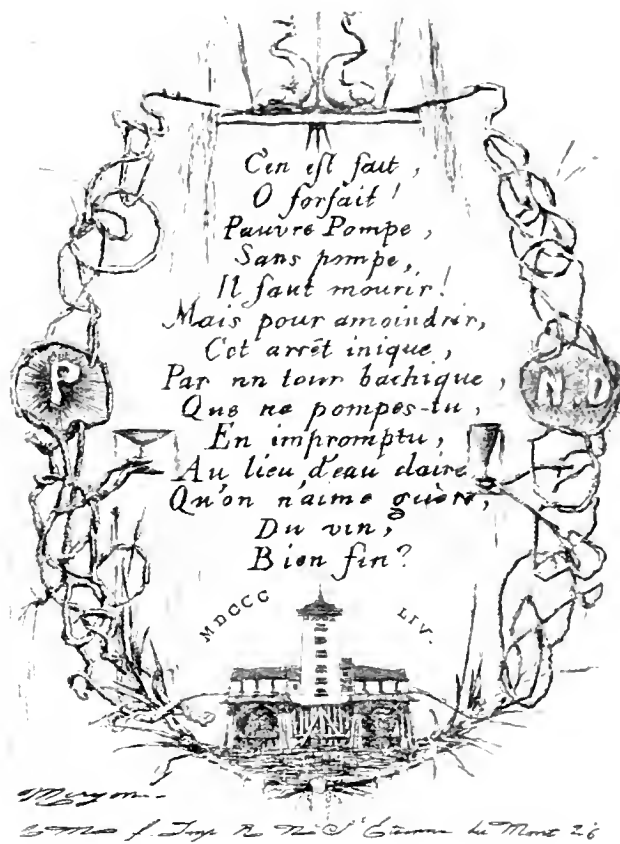 C'en est fait,
O forfait!
Pauvre Pompe,
Sans pompe,
Il faut mourir!
Mais pour amoindrir,
Cet arrêt inique,
Par un tour bachique,
Que ne pompes-tu,
En impromptu,
Au lieu d'eau claire
Qu'on n'aime guère,
Du vin,
Bien fin?
P
N D
MDCCC LIV.
Meryon
f. Imp R. Ne St Étienne du Mont 26